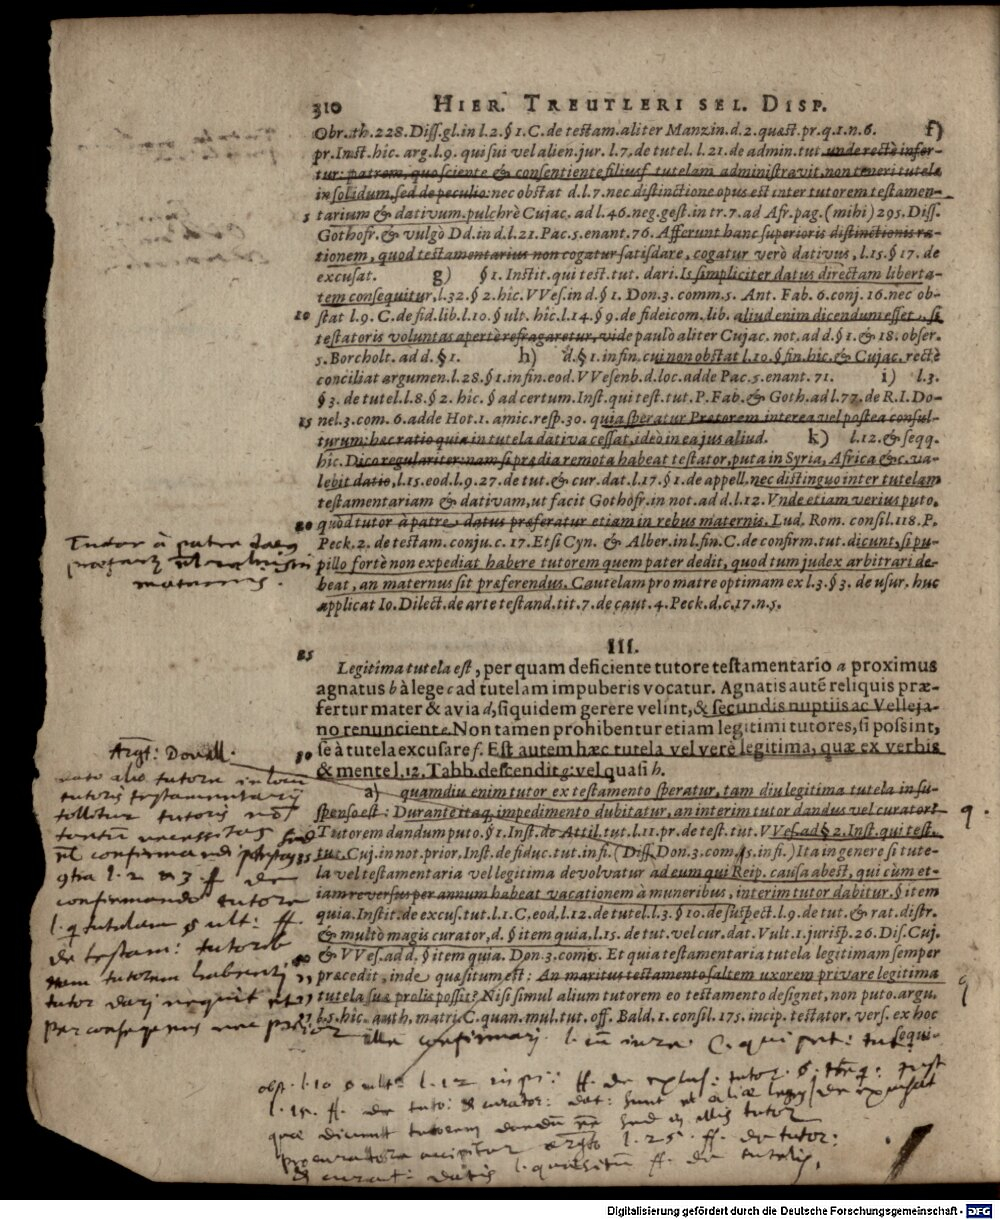 310 HIER. TREUTLERI SEL. DISP.
Obr. th. 228. Diss. gl. in l. 2. § 1. C. de testam. aliter Manz. in d. 2. quæst. pr. q. 1. n. 6. f)
pr. Inst. hic. arg. l. 9. qui sui vel alien. jur. l. 7. de tutel. l. 21. de admin. tut. unde rectè infer-
tur: patrem, quo sciente & consentiente filiusf. tutelam administravit, non teneri tutela
in solidum, sed de peculio: nec obstat d. l. 7. nec distinctione opus est inter tutorem testamen-
5 tarium & dativum. pulchrè Cujac. ad l. 46. neg. gest. in tr. 7. ad Afr. pag. (mihi) 295. Diss.
Gothofr. & vulgò Dd. in d. l. 21. Pac. 5. enant. 76. Afferunt hanc superioris distinctionis ra-
tionem, quod testamentarius non cogatur satisdare, cogatur verò dativus, l. 15. § 17. de
excusat. g) § 1. Instit. qui test. tut. dari. Is simpliciter datus directam liberta-
tem consequitur, l. 32. § 2. hic. VVes. in d. § 1. Don. 3. comm. 5. Ant. Fab. 6. conj. 16. nec ob-
10 stat l. 9. C. de fid. lib. l. 10. § ult. hic. l. 14. § 9. de fideicom. lib. aliud enim dicendum esset, si
testatoris voluntas apertè refragaretur, vide paulò aliter Cujac. not. ad d. § 1. & 18. obser.
5. Borcholt. ad d. § 1. h) d. § 1. in fin. cui non obstat l. 10. § fin. hic. & Cujac. rectè
conciliat argumen. l. 28. § 1. in fin. eod. VVesenb. d. loc. adde Pac. 5. enant. 71. i) l. 3.
§ 3. de tutel. l. 8. § 2. hic. § ad certum. Inst. qui test. tut. P. Fab. & Goth. ad l. 77. de R. I. Do-
15 nel. 3. com. 6. adde Hot. 1. amic. resp. 30. quia speratur Prætorem interea vel postea consul-
turum: hæc ratio quia in tutela dativa cessat, ideò in ea jus aliud. k) l. 12. & seqq.
hic. Dico regulariter: nam si prædia remota habeat testator, puta in Syria, Africa &c. va-
lebit datio, l. 15. eod. l. 9. 27. de tut. & cur. dat. l. 17. § 1. de appell. nec distinguo inter tutelam
testamentariam & dativam, ut facit Gothofr. in not. ad d. l. 12. Unde etiam verius puto,
20 quòd tutor à patre datus præferatur etiam in rebus maternis. Lud. Rom. consil. 118. P.
Peck. 2. de testam. conju. c. 17. Etsi Cyn. & Alber. in l. fin. C. de confirm. tut. dicunt, si pu-
pillo fortè non expediat habere tutorem quem pater dedit, quod tum judex arbitrari de-
beat, an maternus sit præferendus. Cautelam pro matre optimam ex l. 3. § 3. de usur. huc
applicat Io. Dilect. de arte testand. tit. 7. de caut. 4. Peck. d. c. 17. n. 5.
Tutor à patre datus
maternis.
25 III.
Legitima tutela est, per quam deficiente tutore testamentario a proximus
agnatus b à lege c ad tutelam impuberis vocatur. Agnatis autē reliquis præ-
fertur mater & avia d, siquidem gerere velint, & secundis nuptiis ac Velleja-
no renuncient e. Non tamen prohibentur etiam legitimi tutores, si possint,
30 se à tutela excusare f. Est autem hæc tutela vel verè legitima, quæ ex verbis
& mente l. 12. Tabb. descendit g: vel quasi h.
a) quamdiu enim tutor ex testamento speratur, tam diu legitima tutela in su-
spenso est: Durante itaq; impedimento dubitatur, an interim tutor dandus vel curator?
Tutorem dandum puto. § 1. Inst. de Attil. tut. l. 11. pr. de test. tut. VVes. ad § 2. Inst. qui test.
35 tut. Cuj. in not. prior. Inst. de fiduc. tut. in fi. (Diss. Don. 3. com. 15. in fi.) Ita in genere si tute-
la vel testamentaria vel legitima devolvatur ad eum qui Reip. causa abest, qui cum et-
iam reversus per annum habeat vacationem à muneribus, interim tutor dabitur. § item
quia. Instit. de excus. tut. l. 1. C. eod. l. 12. de tutel. l. 3. § 10. de suspect. l. 9. de tut. & rat. distr.
& multò magis curator, d. § item quia, l. 15. de tut. vel cur. dat. Vult. 1. jurisp. 26. Dis. Cuj.
& VVes. ad d. § item quia. Don. 3. com. 15. Et quia testamentaria tutela legitimam semper
præcedit, inde quæsitum est: An maritus testamento saltem uxorem privare legitima
tutela suæ prolis possit? Nisi simul alium tutorem eo testamento designet, non puto. argu.
l. 5. hic. auth. matri. C. quan. mul. tut. off. Bald. 1. consil. 175. incip. testator. vers. ex hoc
sequi-
dato alio tutore in locu
tutoris testamentarij
tollitur tutoris
confirmando tutore
de testam: tutorē
tutor dari nequit et
per consequens nec
Digitalisierung gefördert durch die Deutsche Forschungsgemeinschaft - DFG